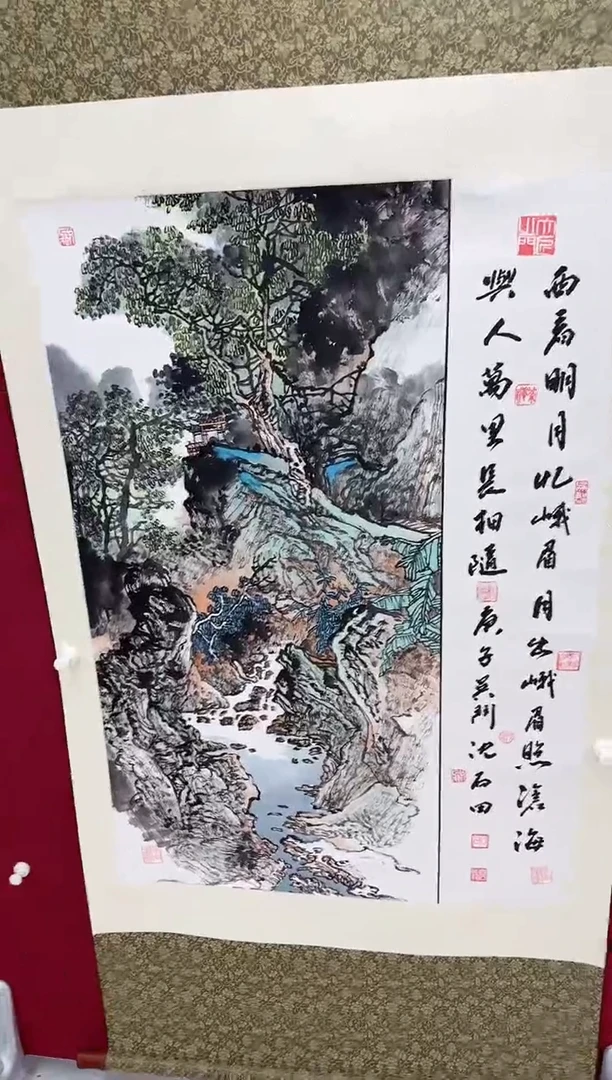 西看明月忆峨眉月出峨眉照滄海
與人萬里長相隨庚子吴門沈石田